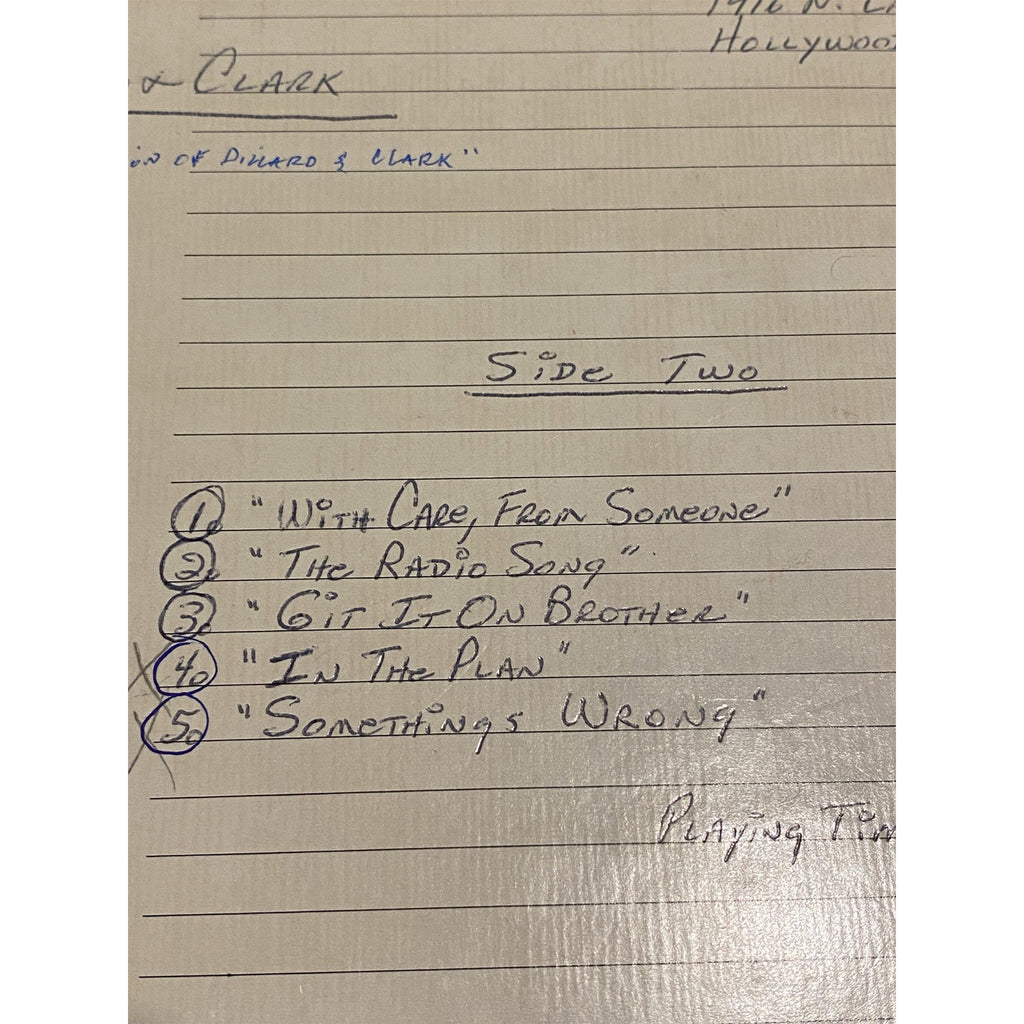 1416 N. L
HOLLYWOO
& CLARK
ON OF DILLARD & CLARK"
SIDE TWO
1. "WITH CARE, FROM SOMEONE"
2. "THE RADIO SONG"
3. "GIT IT ON BROTHER"
4. "IN THE PLAN"
5. "SOMETHINGS WRONG"
PLAYING TIM